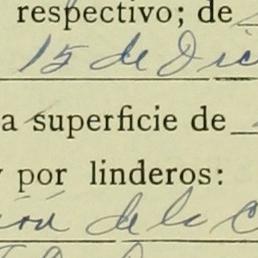 respectivo; de
15 de Dic
a superficie de
y por linderos:
ión de la C